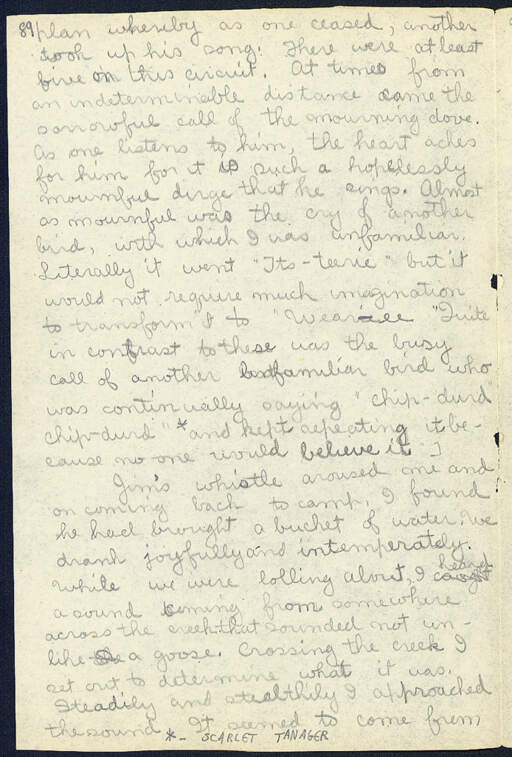 89/plan whereby as one ceased, another
took up his song. There were at least
five on this circuit. At times from
an indeterminable distance came the
sorrowful call of the mourning dove.
As one listens to him, the heart aches
for him for it is such a hopelessly
mournful dirge that he sings. Almost
as mournful was the cry of another
bird, with which I was unfamiliar.
Literally it went "Its-teerie" but it
would not require much imagination
to transform it to "Wearieee" Quite
in contrast to these was the busy
call of another unfamiliar bird who
was continually saying "chip-durd
chip-durd" * and kept repeating it be-
cause no one would believe it ]
Jim's whistle aroused me and
on coming back to camp, I found
he had brought a bucket of water. We
drank joyfully and intemperately.
While we were lolling about, I heard
a sound coming from somewhere
across the creek that sounded not un-
like a goose. Crossing the creek I
set out to determine what it was.
Steadily and stealthily I approached
the sound. It seemed to come from,
*- SCARLET TANAGER